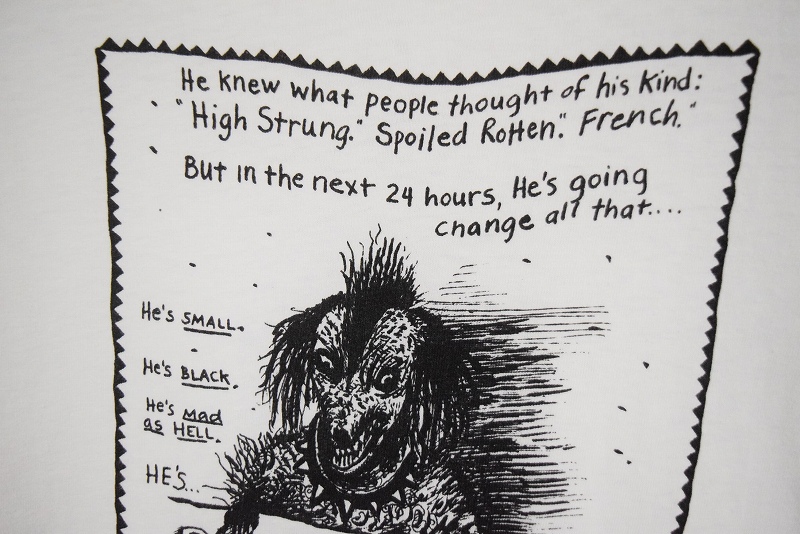 He knew what people thought of his Kind:
"High Strung." Spoiled Rotten." French."
But in the next 24 hours, He's going
change all that....
He's SMALL.
He's BLACK.
He's Mad
as HELL.
HE'S...